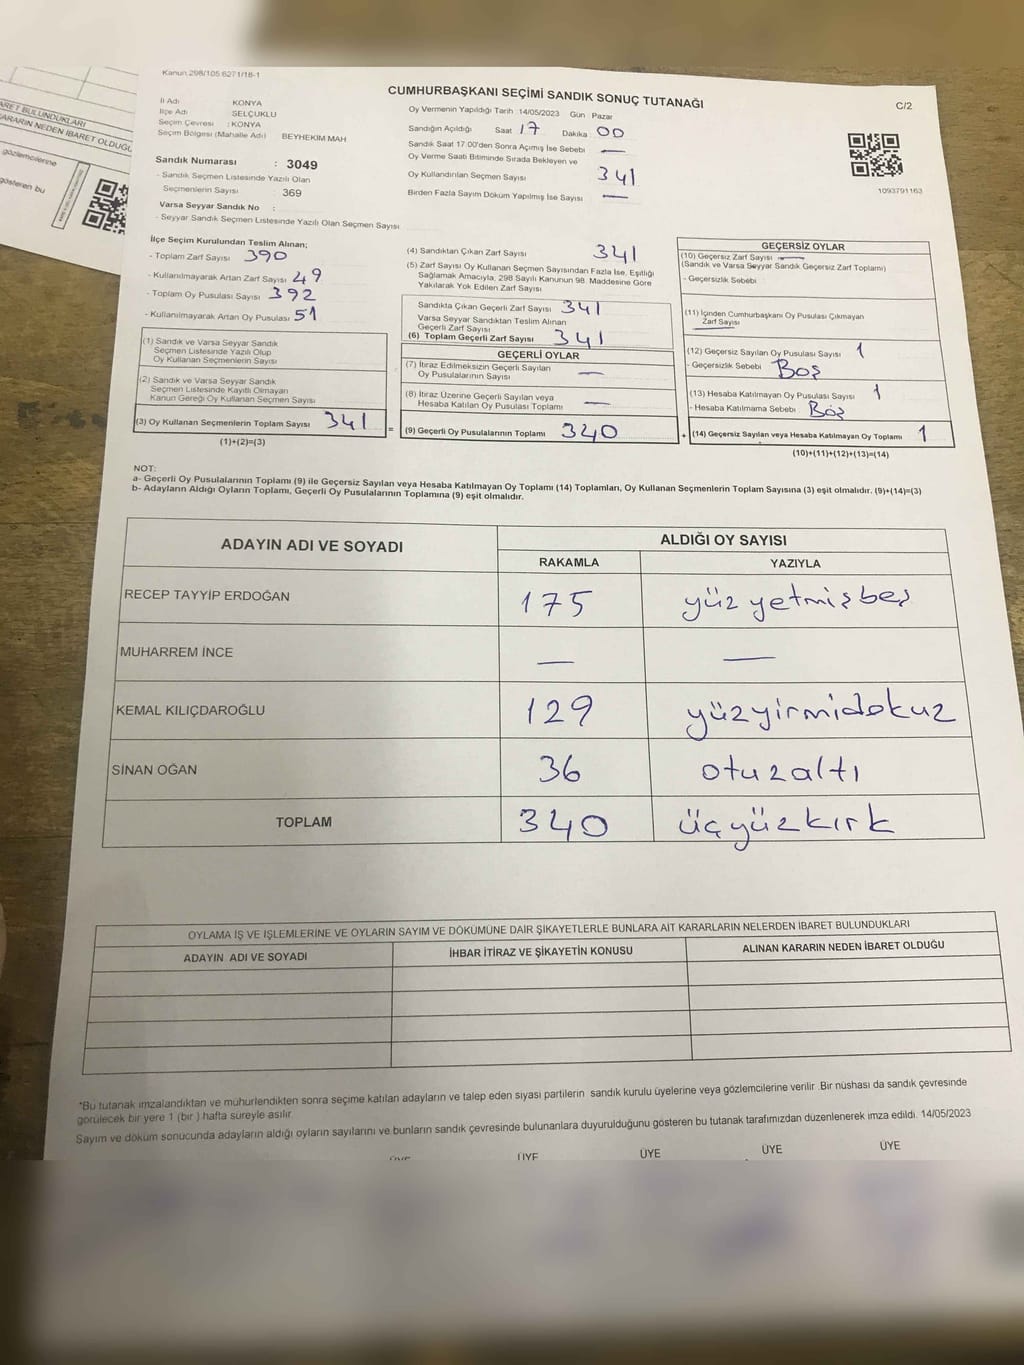 Kanun 298/105:6271/18-1
CUMHURBAŞKANI SEÇİMİ SANDIK SONUÇ TUTANAĞI
C/2
İl Adı KONYA
İlçe Adı SELÇUKLU
Seçim Çevresi : KONYA
Seçim Bölgesi (Mahalle Adı) BEYHEKIM MAH
Sandık Numarası : 3049
- Sandık Seçmen Listesinde Yazılı Olan
Seçmenlerin Sayısı : 369
Varsa Seyyar Sandık No :
- Seyyar Sandık Seçmen Listesinde Yazılı Olan Seçmen Sayısı
Oy Vermenin Yapıldığı Tarih :14/05/2023 Gün Pazar
Sandığın Açıldığı Saat 17 Dakika 00
Sandık Saat 17.00'den Sonra Açımış İse Sebebi —
Oy Verme Saati Bitiminde Sırada Bekleyen ve
Oy Kullandırılan Seçmen Sayısı 341
Birden Fazla Sayım Döküm Yapılmış İse Sayısı —
1093791163
İlçe Seçim Kurulundan Teslim Alınan;
- Toplam Zarf Sayısı 390
- Kullanılmayarak Artan Zarf Sayısı 49
- Toplam Oy Pusulası Sayısı 392
- Kullanılmayarak Artan Oy Pusulası 51
(1) Sandık ve Varsa Seyyar Sandık
Seçmen Listesinde Yazılı Olup
Oy Kullanan Seçmenlerin Sayısı
(2) Sandık ve Varsa Seyyar Sandık
Seçmen Listesinde Kayıtlı Olmayan
Kanun Gereği Oy Kullanan Seçmen Sayısı
(3) Oy Kullanan Seçmenlerin Toplam Sayısı 341
(1)+(2)=(3)
(4) Sandıktan Çıkan Zarf Sayısı 341
(5) Zarf Sayısı Oy Kullanan Seçmen Sayısından Fazla İse, Eşitliği
Sağlamak Amacıyla, 298 Sayılı Kanunun 98. Maddesine Göre
Yakılarak Yok Edilen Zarf Sayısı
Sandıkta Çıkan Geçerli Zarf Sayısı 341
Varsa Seyyar Sandıktan Teslim Alınan
Geçerli Zarf Sayısı
(6) Toplam Geçerli Zarf Sayısı 341
GEÇERLİ OYLAR
(7) İtiraz Edilmeksizin Geçerli Sayılan
Oy Pusulalarının Sayısı —
(8) İtiraz Üzerine Geçerli Sayılan veya
Hesaba Katılan Oy Pusulası Toplamı —
= (9) Geçerli Oy Pusulalarının Toplamı 340
GEÇERSİZ OYLAR
(10) Geçersiz Zarf Sayısı —
(Sandık ve Varsa Seyyar Sandık Geçersiz Zarf Toplamı)
- Geçersizlik Sebebi
(11) İçinden Cumhurbaşkanı Oy Pusulası Çıkmayan
Zarf Sayısı —
(12) Geçersiz Sayılan Oy Pusulası Sayısı 1
- Geçersizlik Sebebi Boş
(13) Hesaba Katılmayan Oy Pusulası Sayısı 1
- Hesaba Katılmama Sebebi Boş
+ (14) Geçersiz Sayılan veya Hesaba Katılmayan Oy Toplamı 1
(10)+(11)+(12)+(13)=(14)
NOT:
a- Geçerli Oy Pusulalarının Toplamı (9) ile Geçersiz Sayılan veya Hesaba Katılmayan Oy Toplamı (14) Toplamları, Oy Kullanan Seçmenlerin Toplam Sayısına (3) eşit olmalıdır. (9)+(14)=(3)
b- Adayların Aldığı Oyların Toplamı, Geçerli Oy Pusulalarının Toplamına (9) eşit olmalıdır.
ADAYIN ADI VE SOYADI ALDIĞI OY SAYISI
RAKAMLA YAZIYLA
RECEP TAYYİP ERDOĞAN 175 yüz yetmiş beş
MUHARREM İNCE — —
KEMAL KILIÇDAROĞLU 129 yüzyirmidokuz
SİNAN OĞAN 36 otuzaltı
TOPLAM 340 üçyüzkırk
OYLAMA İŞ VE İŞLEMLERİNE VE OYLARIN SAYIM VE DÖKÜMÜNE DAİR ŞİKAYETLERLE BUNLARA AİT KARARLARIN NELERDEN İBARET BULUNDUKLARI
ADAYIN ADI VE SOYADI İHBAR İTİRAZ VE ŞİKAYETİN KONUSU ALINAN KARARIN NEDEN İBARET OLDUĞU
*Bu tutanak imzalandıktan ve mühürlendikten sonra seçime katılan adayların ve talep eden siyasi partilerin sandık kurulu üyelerine veya gözlemcilerine verilir. Bir nüshası da sandık çevresinde
görülecek bir yere 1 (bir) hafta süreyle asılır.
Sayım ve döküm sonucunda adayların aldığı oyların sayılarını ve bunların sandık çevresinde bulunanlara duyurulduğunu gösteren bu tutanak tarafımızdan düzenlenerek imza edildi. 14/05/2023
ÜYE ÜYE ÜYE ÜYE ÜYE
BARET BULUNDUKLARI
KARARIN NEDEN İBARET OLDUĞU
gözlemcilerine
gösteren bu